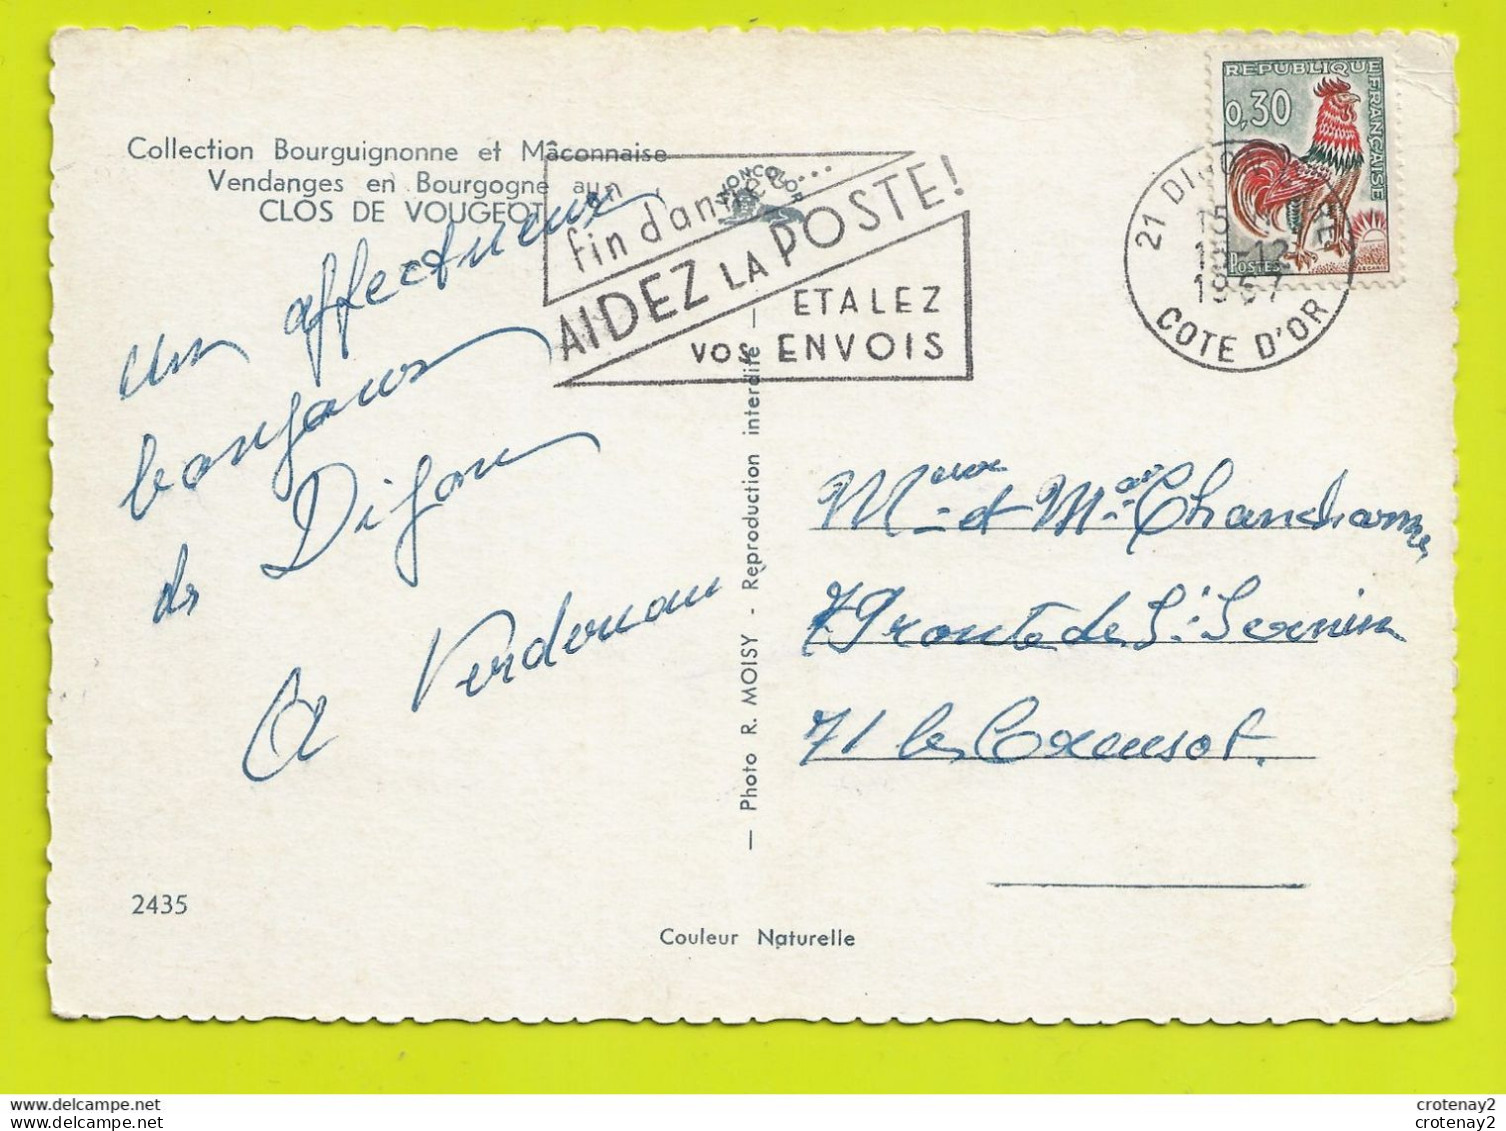 Collection Bourguignonne et Mâconnaise
Vendanges en Bourgogne au
CLOS DE VOUGEOT
un affectueux
bonjour
de Dijon
Verdenau
2435
Couleur Naturelle
— Photo R. MOISY - Reproduction interdite —
MONCOLOR
fin d'année...
AIDEZ LA POSTE!
ETALEZ
VOS ENVOIS
REPUBLIQUE
FRANÇAISE
0,30
POSTES
21 DIJON
15
15-12
1967
COTE D'OR
Mr et Me
79 route de St Sernin
71 le Creusot.
crotenay2
crotenay2
crotenay2
crotenay2